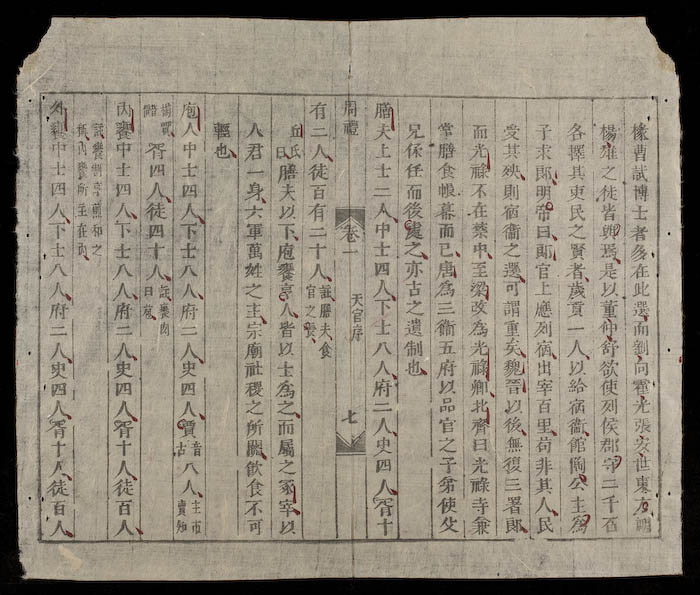 掾曹試博士者多在此選而劉向霍光張安世東方朔
楊雄之徒皆與焉是以董仲舒欲使列侯郡守二千石
各擇其吏民之賢者歲貢一人以給宿衞館陶公主為
子求郎明帝曰郎官上應列宿出宰百里苟非其人民
受其殃則宿衞之選可謂重矣魏晉以後無復三署郎
而光祿不在禁中至梁改為光祿卿北齊曰光祿寺兼
掌膳食帳幕而已唐為三衞五府以品官之子弟使父
兄保任而後處之亦古之遺制也
膳夫上士二人中士四人下士八人府二人史四人胥十
周禮 卷一 天官序 七
有二人徒百有二十人註膳夫食官之長
丘氏曰膳夫以下庖饔亨人皆以士為之而屬之冢宰以
人君一身六軍萬姓之主宗廟社稷之所關飲食不可
輕也
庖人中士四人下士八人府二人史四人賈音古八人主市賣知
物賈胥四人徒四十人註裹肉曰苞
內饔中士四人下士八人府二人史四人胥十人徒百人
註饔割亨煎和之稱內饔所主在內
外饔中士四人下士八人府二人史四人胥十人徒百人